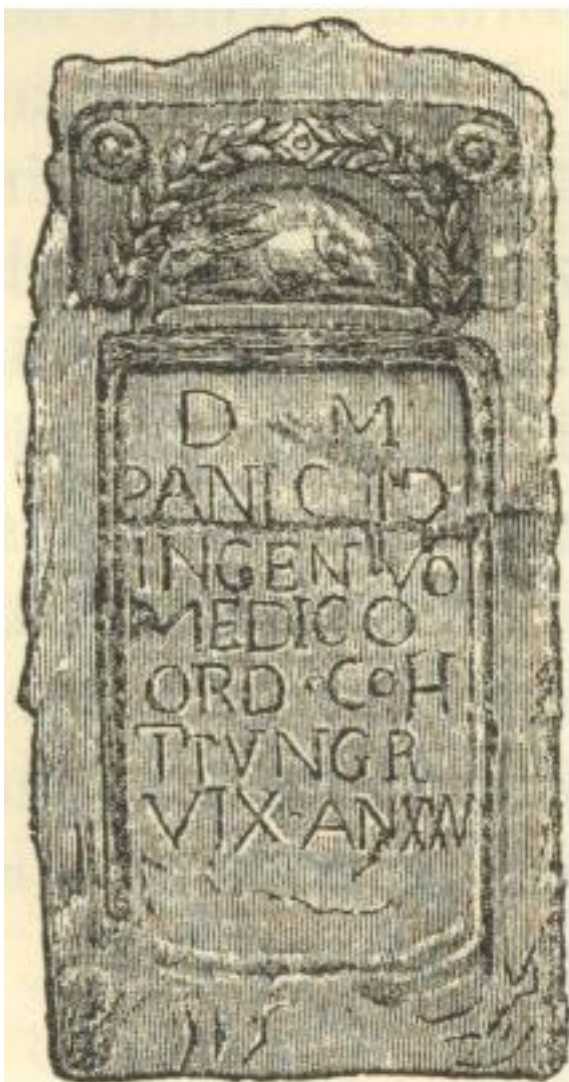 D M
ANICIO
INGENVO
MEDICO
ORD · COH
I TVNGR
VIX · AN XXV